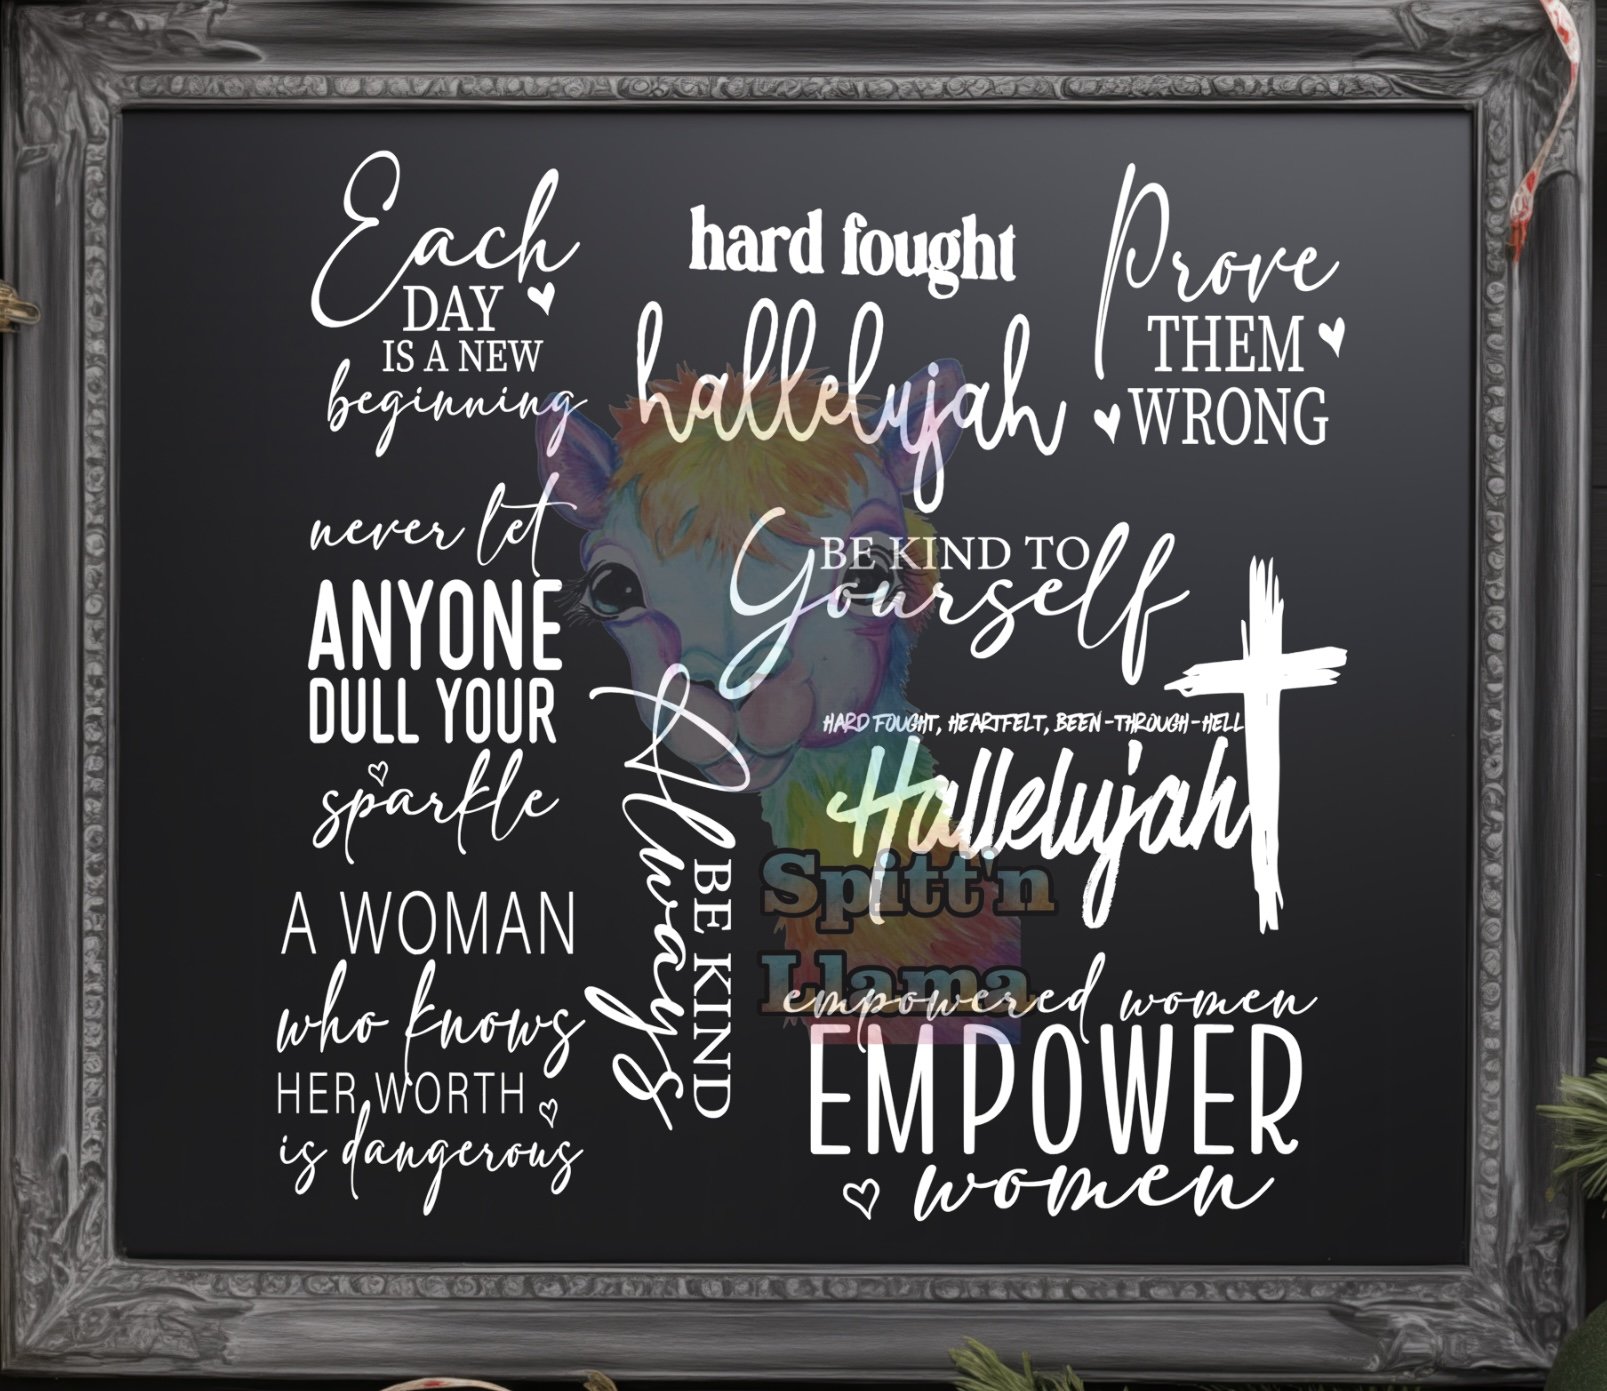 Each
DAY
IS A NEW
beginning
hard fought
hallelujah
Prove
THEM
WRONG
never let
ANYONE
DULL YOUR
sparkle
BE KIND TO
yourself
HARD FOUGHT, HEARTFELT, BEEN-THROUGH-HELL
Hallelujah
Always
BE KIND
Spitt'n
Llama
A WOMAN
who knows
HER WORTH
is dangerous
empowered women
EMPOWER
women